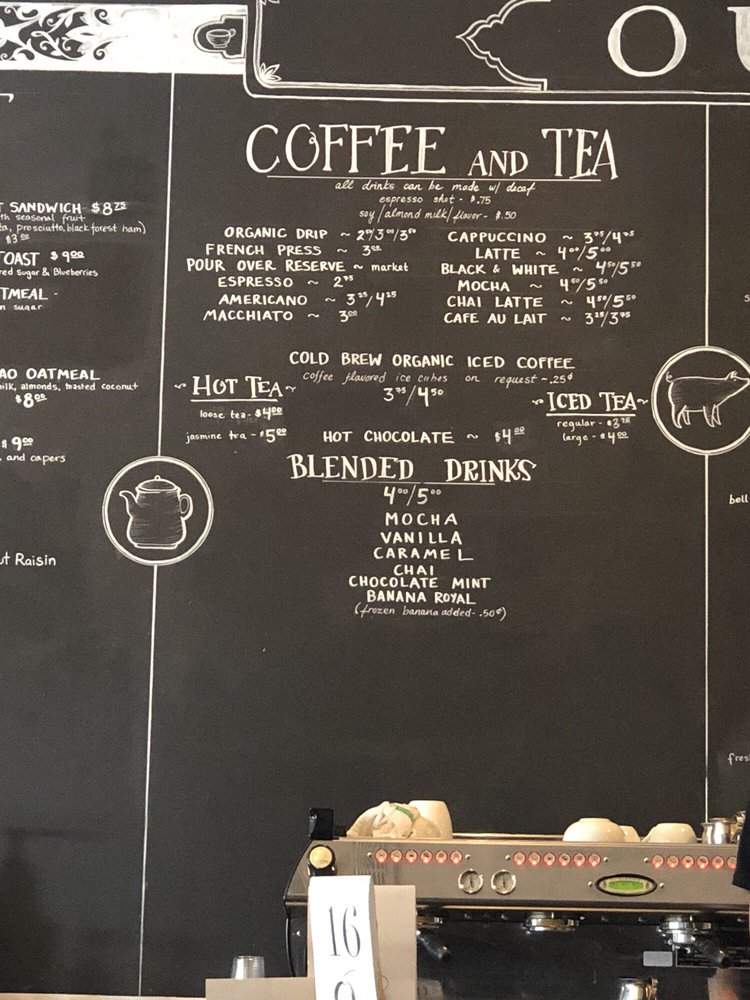 OU
T SANDWICH $8 75
th seasonal fruit
ta, prosciutto, black forest ham)
$3 00
TOAST $9 00
red Sugar & Blueberries
TMEAL -
n sugar
AO OATMEAL
milk, almonds, toasted coconut
$8 00
$9 00
and capers
ut Raisin
COFFEE AND TEA
all drinks can be made w/ decaf
espresso shot - $.75
soy/almond milk/flavor - $.50
ORGANIC DRIP ~ 2 50/3 00/3 50
FRENCH PRESS ~ 3 00
POUR OVER RESERVE ~ market
ESPRESSO ~ 2 75
AMERICANO ~ 3 25/4 25
MACCHIATO ~ 3 00
CAPPUCCINO ~ 3 75/4 75
LATTE ~ 4 00/5 00
BLACK & WHITE ~ 4 50/5 50
MOCHA ~ 4 50/5 50
CHAI LATTE ~ 4 50/5 50
CAFE AU LAIT ~ 3 25/3 75
COLD BREW ORGANIC ICED COFFEE
coffee flavored ice cubes on request - .25¢
3 75/4 50
~ HOT TEA ~
loose tea - $4 00
jasmine tea - $5 00
~ ICED TEA ~
regular - $3 75
large - $4 00
HOT CHOCOLATE ~ $4 00
BLENDED DRINKS
4 00/5 00
MOCHA
VANILLA
CARAMEL
CHAI
CHOCOLATE MINT
BANANA ROYAL
(frozen banana added - .50¢)
bell
fres
16